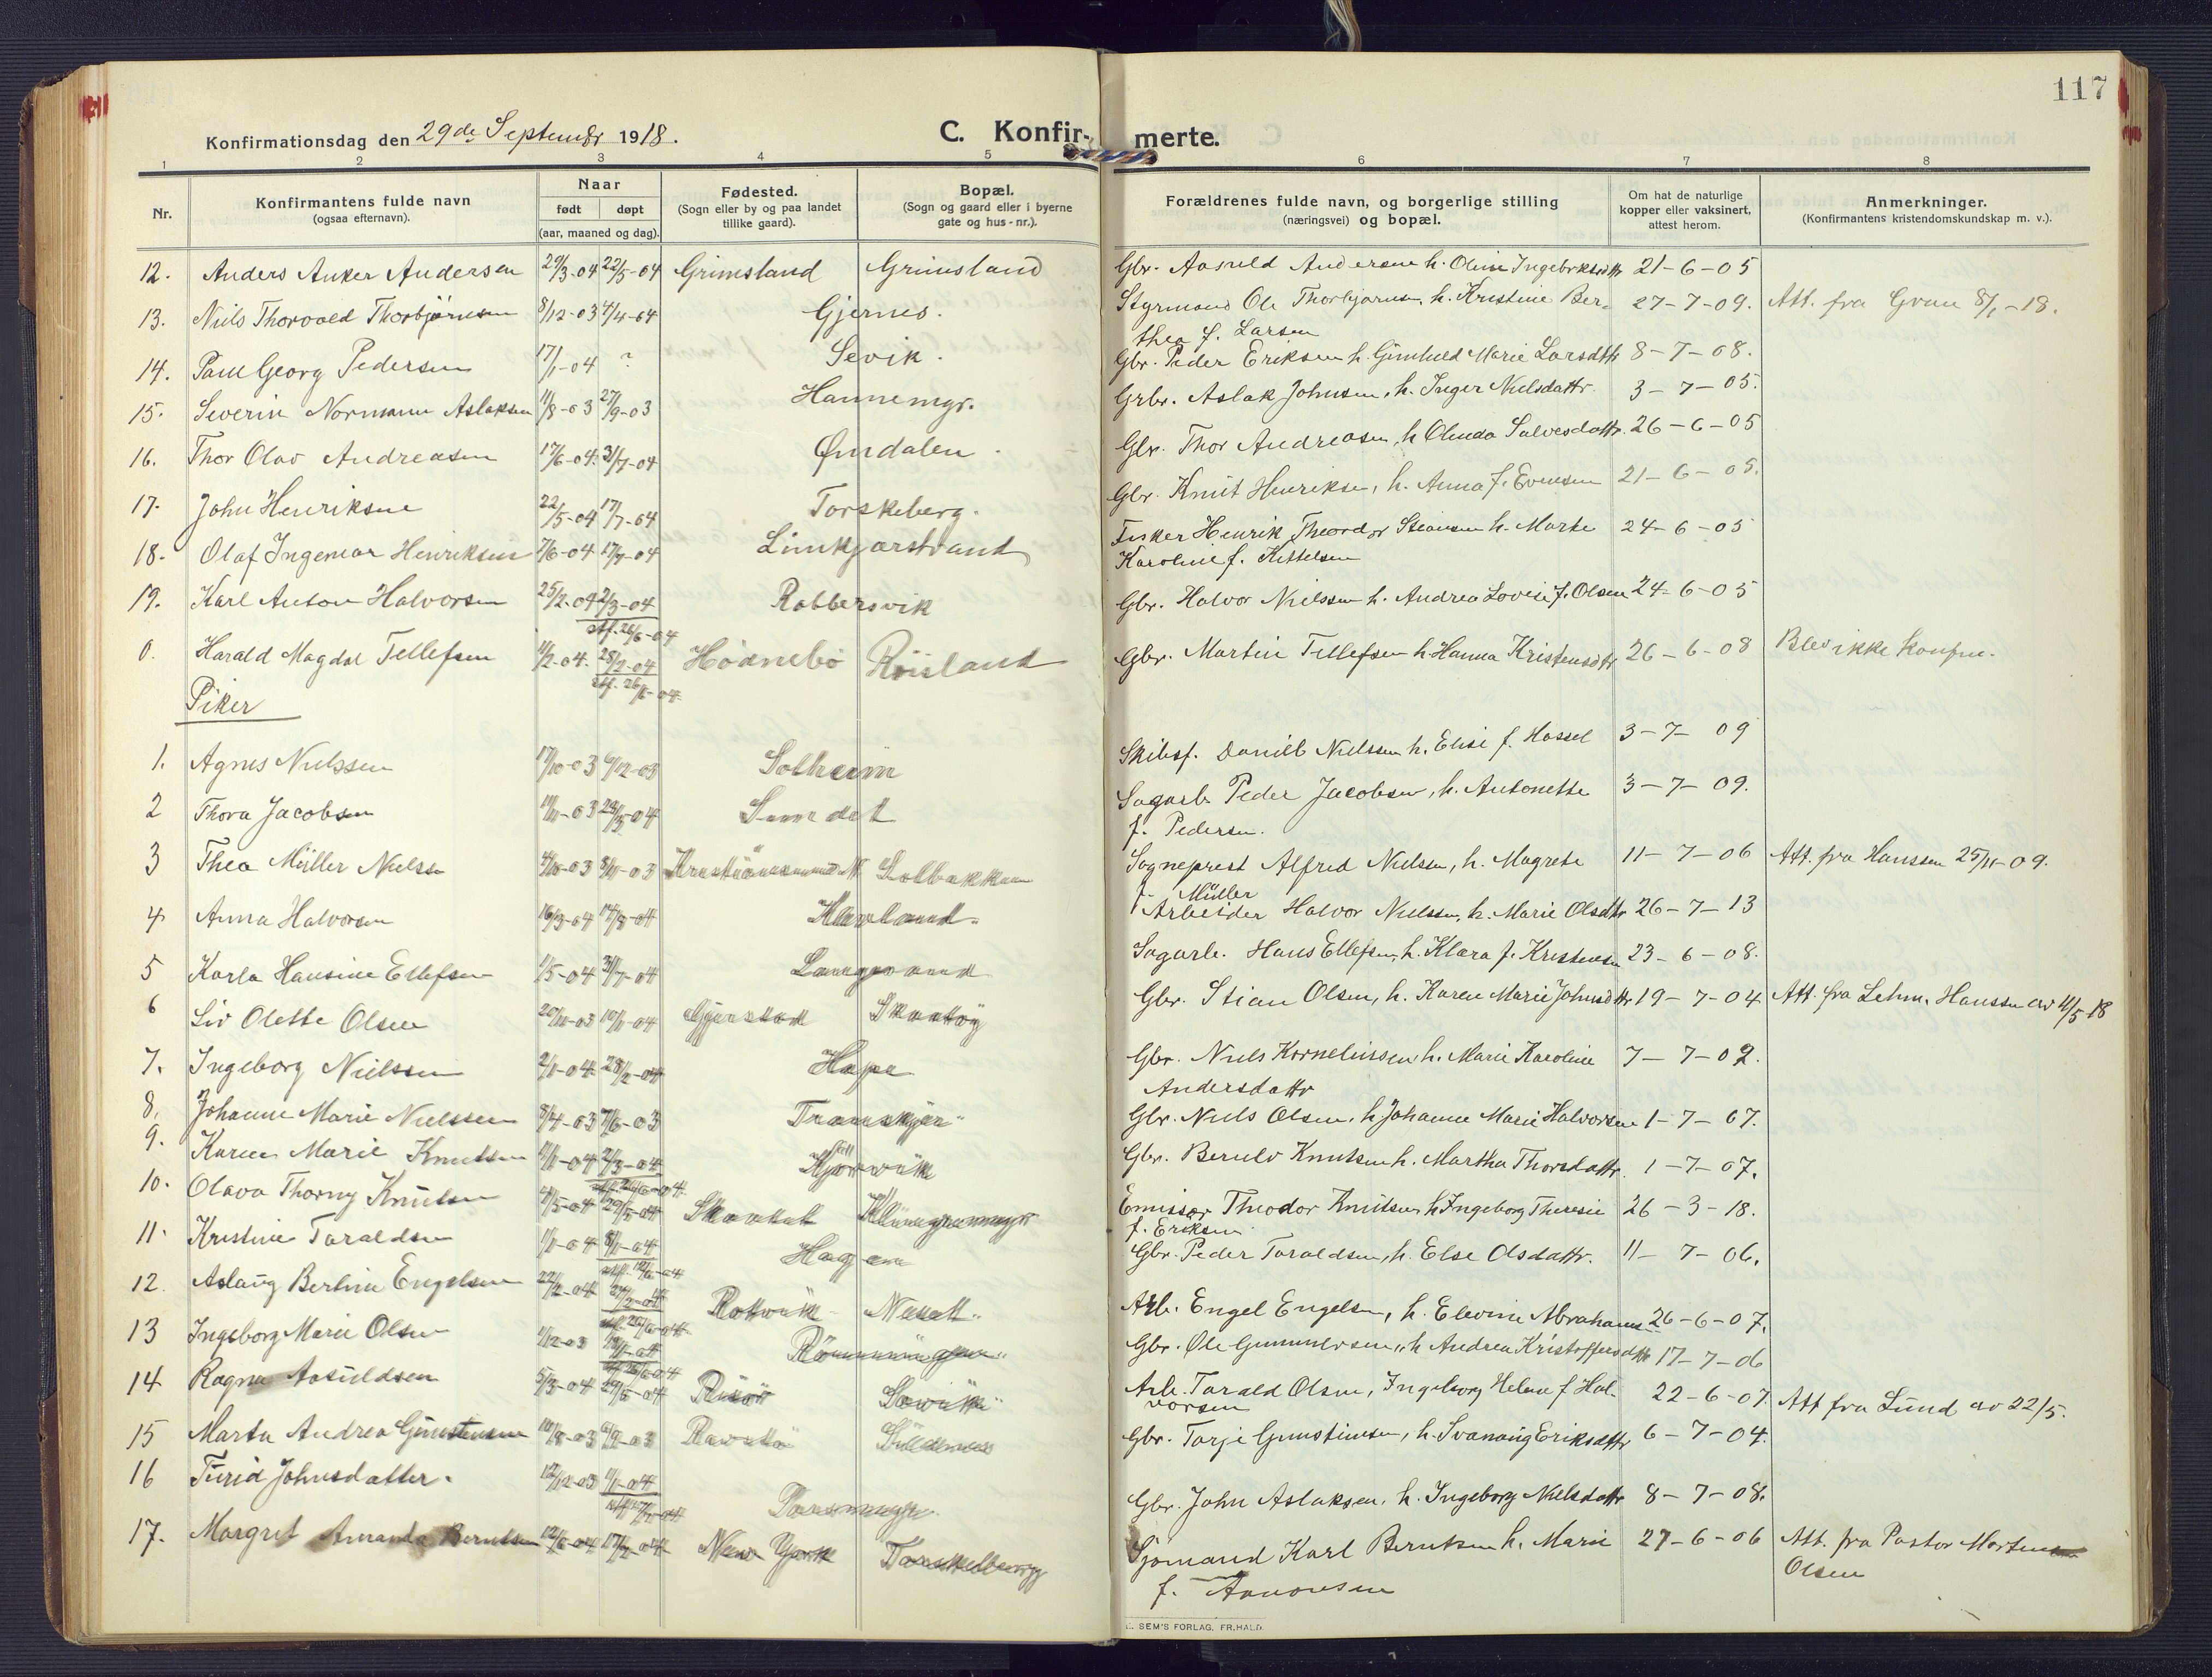 117
Konfirmationsdag den 29de September 1918.
C. Konfirmerte.
1 2 3 4 5 6 7 8
Nr.
Konfirmantens fulde navn
(ogsaa efternavn).
Naar
født døpt
(aar, maaned og dag).
Fødested.
(Sogn eller by og paa landet
tillike gaard).
Bopæl.
(Sogn og gaard eller i byerne
gate og hus-nr.).
Forældrenes fulde navn, og borgerlige stilling
(næringsvei) og bopæl.
Om hat de naturlige
kopper eller vaksinert,
attest herom.
Anmerkninger.
(Konfirmantens kristendomskundskap m. v.).
12. Anders Anker Andersen 29/3-04 22/5-04 Grimsland Grimsland Gbr. Andersen h. Oline 21-6-05
13. Niels Thorvald Thorbjørnsen 8/12-03 4/4-04 Gjernes. Styrmand Ole Thorbjørnsen, h. Kristine Ber- 27-7-09. Att. fra 8/1-18.
thea f. Larsen
14. Georg Pedersen 17/1-04 ? Sevik. Gbr. Peder Eriksen h. Gunhild Marie Larsdttr 8-7-08.
15. Severin Normann Aslaksen 11/8-03 27/9-03 Hannemyr. Grbr. Aslak Johnsen, h. Inger Nielsdattr. 3-7-05.
16. Thor Olav Andreasen 17/6-04. 31/7-04 Ørndalen. Gbr. Thor Andreasen, h Olinda Salvesdattr. 26-6-05
17. John Henriksen 22/5-04 17/7-04 Torskeberg. Gbr. Knut Henriksen, h. Anna f. Evensen 21-6-05.
18. Olaf Ingemar Henriksen 7/6-04 17/7-04 Fisker Henrik Theodor h. Marte 24-6-05
Karoline f. Kittelsen
19. Karl Anton Halvorsen 25/2-04 2/3-04 Robbersvik Gbr. Halvor Nielssen h. Andrea Lovise f. Olsen 24-6-05
stf. 26/6-04
0. Harald Magdal Tellefsen 11/2-04. 28/2-04 Hødnebø Röisland Gbr. Martin Tellefsen h. Hanna Kristensdttr 26-6-08 Blev ikke konfirm.
stf. 26/6-04.
Piker
1. Agnes Nielssen 17/10-03 6/12-03 Solheim Skibsf. Daniel Nielssen h. Elise f. Hassel 3-7-09
2 Thora Jacobsen 11/11-03 Sagarb. Peder Jacobsen, h. Antonette 3-7-09.
f. Pedersen.
3 Thea Müller Nielssen 4/10-03 8/11-03 Kristiansund N. Solbakken Sogneprest Alfred Nielsen, h. Magrete 11-7-06 Att. fra Hanssen 25/11-09.
f. Müller
4 Anna Halvorsen 16/3-04 Arbeider Halvor Nielssen, h. Marie Olsdttr 26-7-13
5 Karla Hansine Ellefsen 1/5-04 31/7-04 Sagarb. Hans Ellefsen, h. Klara f. Kristensen 23-6-08.
6 Liv Olette Olsen 20/11-03 10/1-04 Gjerstad Skaatöy Gbr. Stian Olsen, h. Karen Marie Johnsdttr 19-7-04 Att. fra Lehm. Hanssen av 4/5 18
7. Ingeborg Nielssen 2/1-04 28/2-04 Hope Gbr. Niels Kornelinssen h. Marie Karoline 7-7-02.
Andersdattr
8. Johanne Marie Nielssen 8/4-03 7/6-03 Gbr. Niels Olsen, h. Johanne Marie Halvorsen 1-7-07.
9. Karen Marie Knutsen 11/1-04 2/3-04 Gbr. Berulv Knutsen h. Martha Thorsdattr. 1-7-07.
10. Olava Thorny Knutsen 4/5-04 29/5-04 Emissær Theodor Knutsen h Ingeborg Theresie 26-3-18.
f. Eriksen
11. Kristine Taraldsen 1/1-04 8/1-04 Hagen Gbr. Peder Taraldsen, h. Else Olsdattr. 11-7-06.
12. Aslaug Bertine Engelsen 22/2-04 Arb. Engel Engelsen, h. Elevine Abrahams 26-6-07.
13 Ingeborg Marie Olsen 1/12-03 Gbr. Ole Gunnversen, h Andrea Kristoffersdttr 17-7-06
14 Ragna Aasuldsen 5/3-04 29/5-04 Risör Arb. Tarald Olsen, Ingeborg Helene f. Hal- 22-6-07. Att fra Lund av 22/5.
vorsen
15 Marta Andrea Gunstensen 10/8-03 6/9-03 Gbr. Torje Gunstensen, h. Svanaug Eriksdattr 6-7-04.
16 Turid Johnsdatter. 12/12-03 1/1-04 Gbr. John Aslaksen, h. Ingeborg Nielsdattr 8-7-08.
17. Margret Amanda Berntsen 12/6-04 17/7-04 New York Torskeberg Sjømand Karl Berntsen h. Marie 27-6-06 Att. fra Pastor Morten
Olsen
f. Aanonsen
SEM'S FORLAG, FR.HALD.